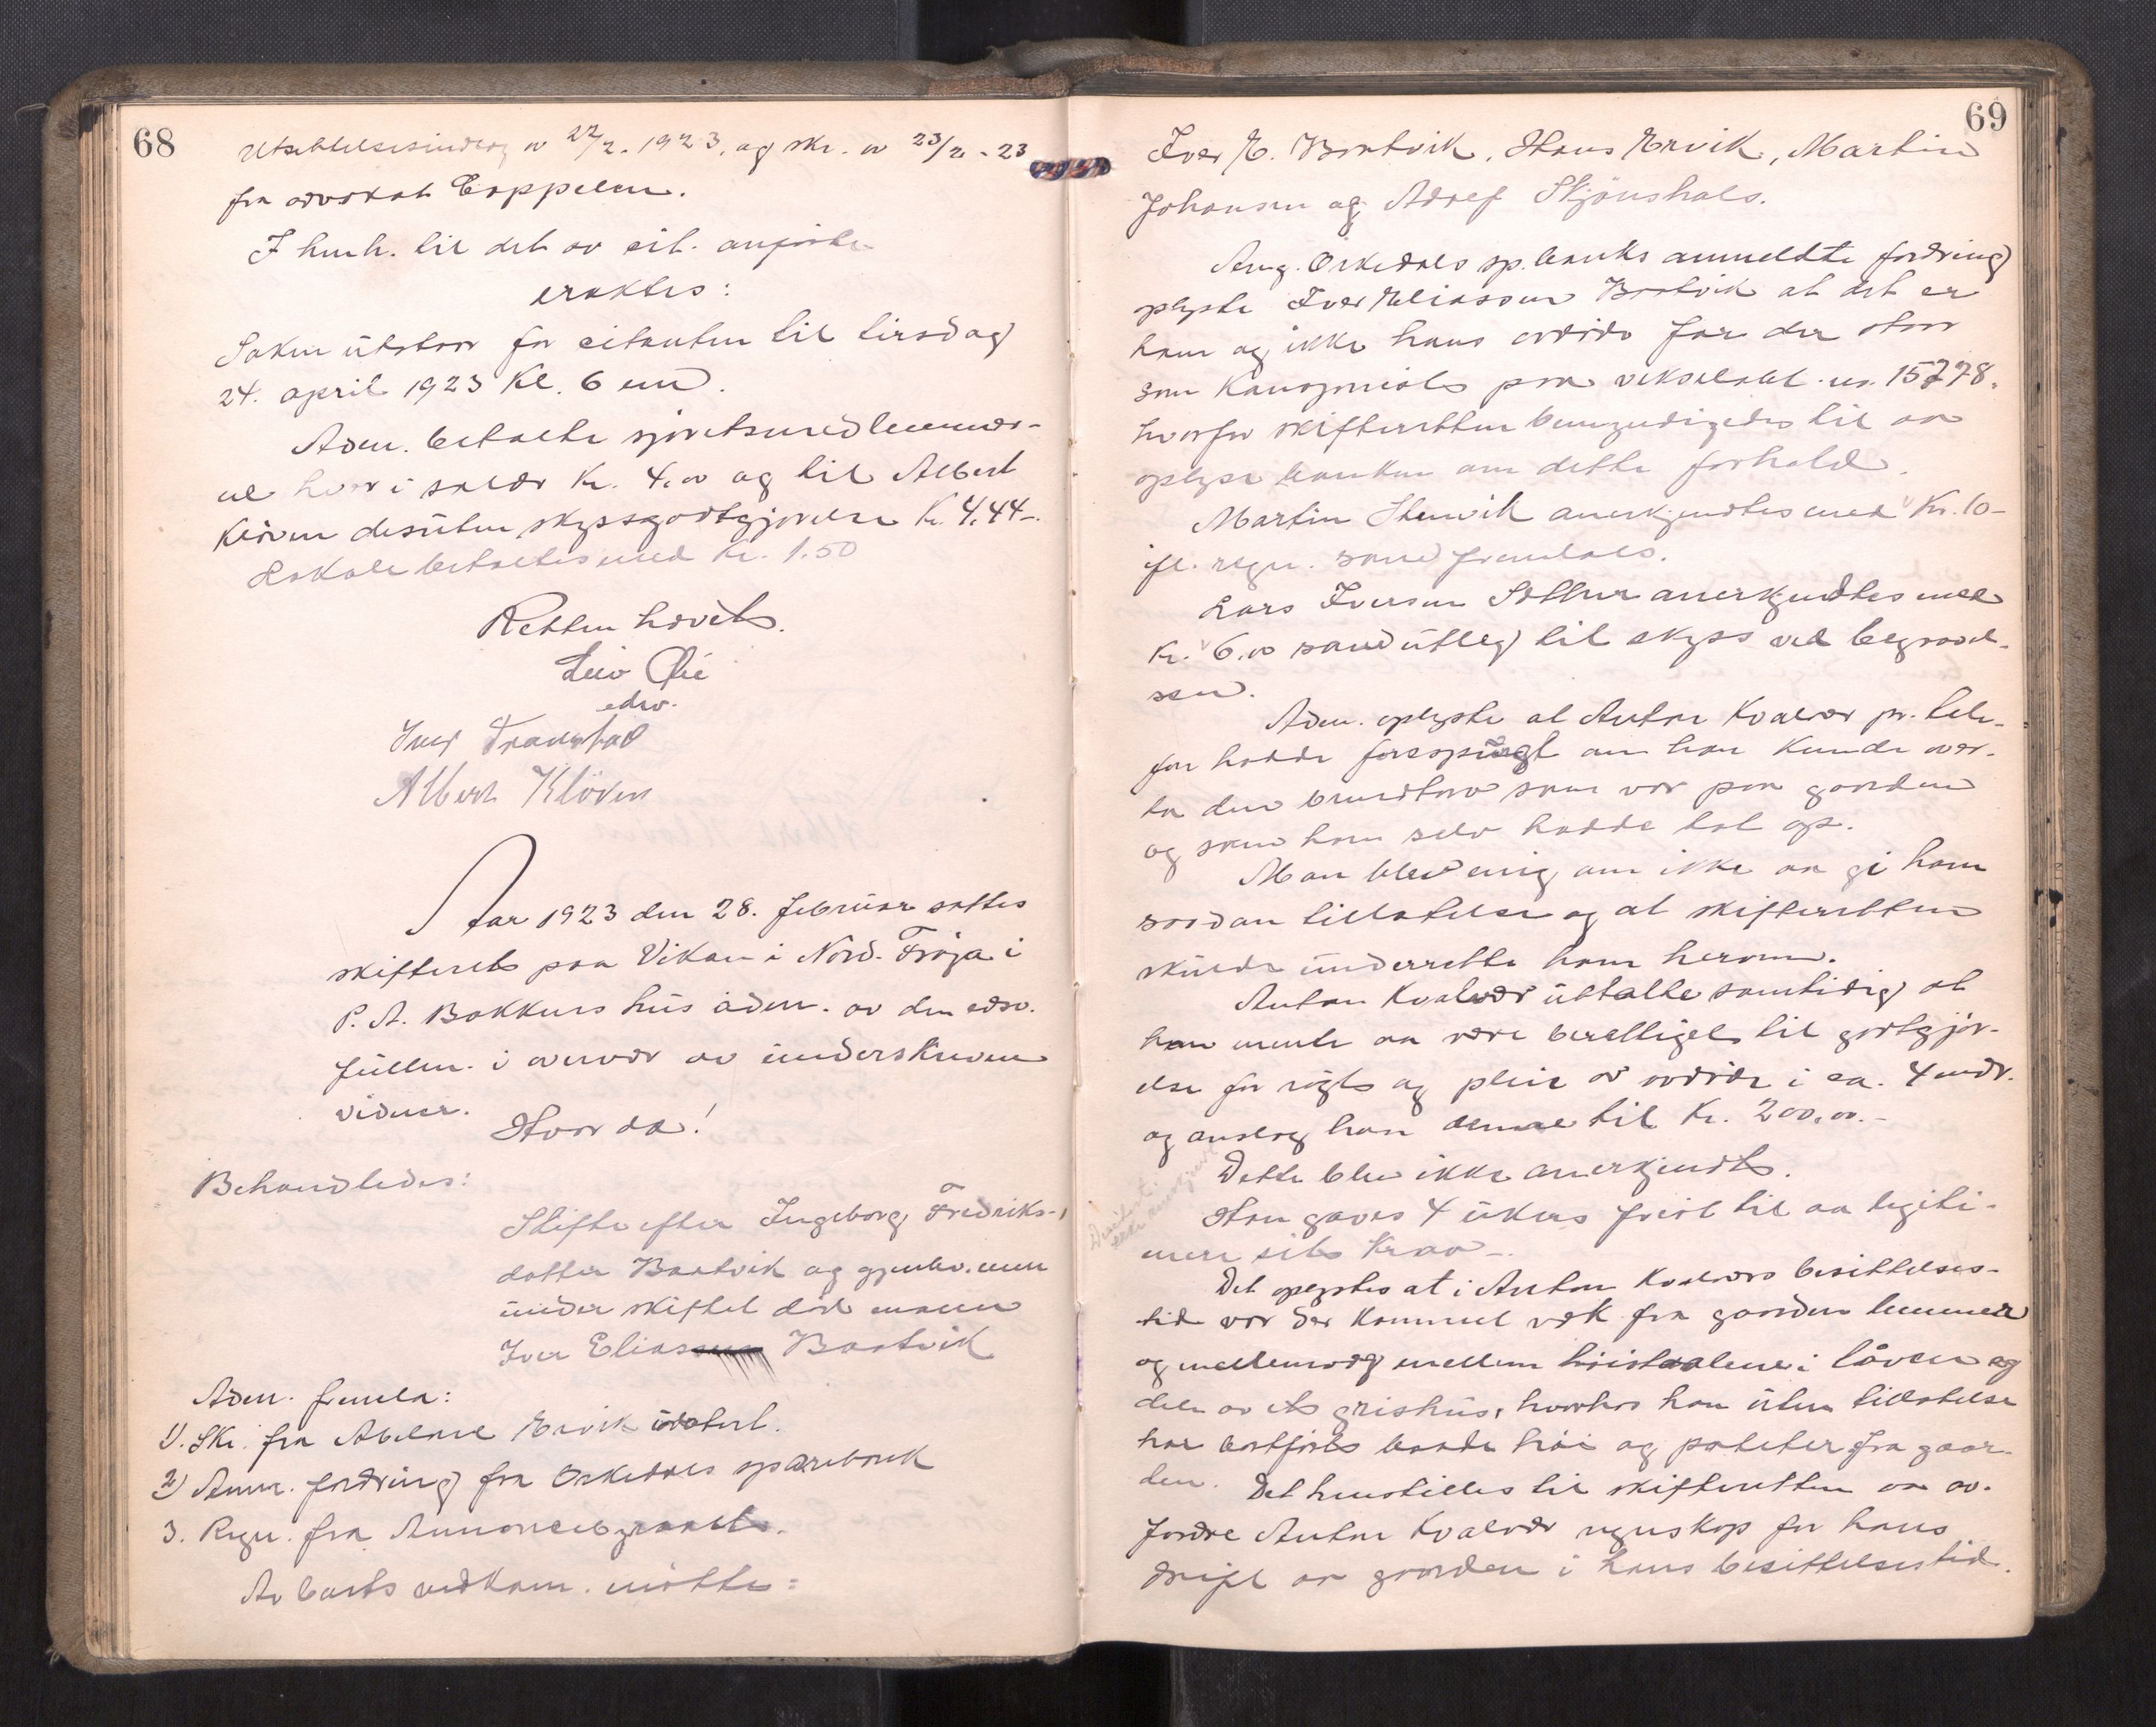 68
Utsættelsesindlæg av 22/2. 1923, og skr. av 23/2 - 23
fra advokat Cappelen.
I henh. til det av cit. anførte
eraktes:
Saken utstaar for citanten til tirsdag
24. april 1923 Kl. 6 em.
Adm. betalte sjøretsmedlemmer-
ne hver i salær Kr. 4,00 og til Albert
Kløven desuten skyssgodtgjørelse Kr. 4,44-.
Lokale betaltes med Kr. 1.50
Retten hævet.
Leiv Øie
edsv.
Albert Kløven
Aar 1923 den 28. februar sattes
skifteret paa Vikan i Nord-Frøya i
P. A. Bekkens hus adm. av den edsv.
fullm. i overvær av underskrevne
vidner.
Hvor da!
Behandledes:
Skifte efter Ingeborg Fredriks-
datter Bartvik og gjenlev. nu
under skiftet død mann
Iver Elias Bartvik
Adm. fremla:
1). Skr. fra Abelone Ervik udatert.
2) Anm. fordring fra Orkedals sparebank
3. Regn. fra Annoncebyraaet.
Av boets vedkom. møtte:
69
Iver E. Bartvik, Hans Ervik, Martin
Johansen og Adolf Skjønshals.
Ang. Orkedals sp.banks anmeldte fordring
oplyste Iver Eliassen Bartvik at det er
ham og ikke hans avdøde far der staar
som Kausjonist paa vekselobl. nr. 15778.
hvorfor skifteretten bemyndigedes til aa
oplyse banken om dette forhold.
Martin Stenvik anerkjendtes med Kr. 10-
ifl. regn. som fremlaes.
Lars Iversen Sætter anerkjendtes med
Kr. 6,00 som utlæg til skyss ved begravel-
sen.
Adm. oplyste at Anton Kvalvær pr. tele-
fon hadde forespurgt om han kunde over-
ta den brendtorv som var paa gaarden
og som han selv hadde tat op.
Man blev enig om ikke aa gi ham
saadan tillatelse og at skifteretten
skulde underrette ham herom.
Anton Kvalvær uttalte samtidig at
han mente aa være berettiget til godtgjør-
else for røgt og pleie av avdøde i ca. 4 mdr.
og anslog han denne til Kr. 200,00.-
Dette blev ikke anerkjendt.
Han gaves 4 ukers frist til aa legiti-
mere sit krav-.
Det oplystes at i Anton Kvalværs besittelses-
tid var der kommet væk fra gaarden lemmer
og mellemvæg mellem høistaalene i låven og
dele av et grishus, hvorhos han uten tillatelse
har bortført baade høi og poteter fra gaar-
den. Det henstilles til skifteretten aa av-
fordre Anton Kvalvær regnskap for hans
drift av gaarden i hans besittelsestid.